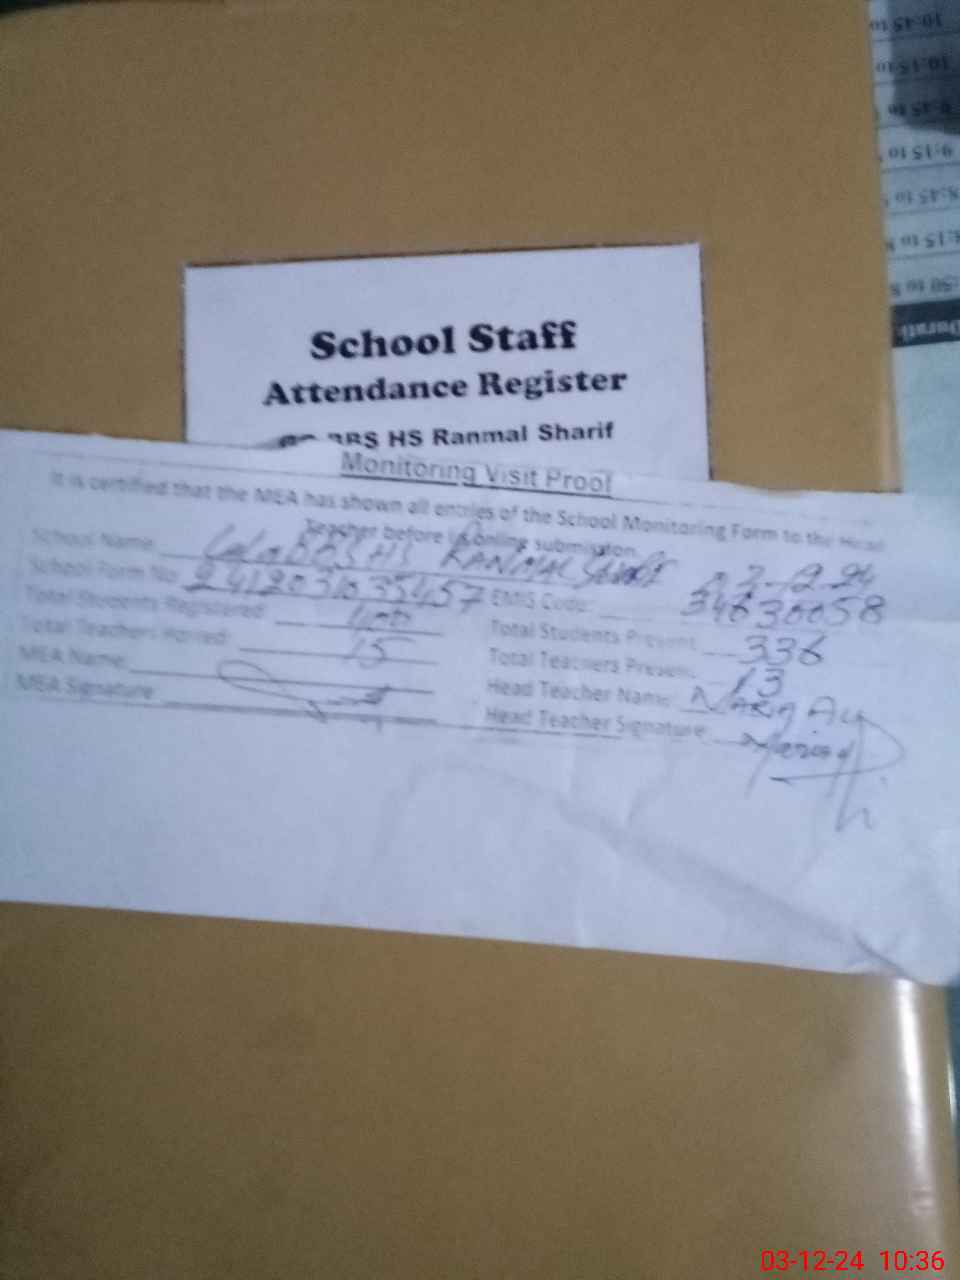 School Staff
Attendance Register
BBS HS Ranmal Sharif
Monitoring Visit Proof
It is certified that the MEA has shown all entries of the School Monitoring Form to the Head
Teacher before online submission.
School Name BBS HS RANMAL Sharif 03-12-24
School Form No 2412031035457 EMIS Code: 34630058
Total Students Registered: 400 Total Students Present 336
Total Teachers Posted: 15 Total Teachers Present 13
MEA Name: Head Teacher Name
MEA Signature Head Teacher Signature
10:45 to
10:15 to
9:45 to
9:15 to
8:45 to
8:15 to
03-12-24 10:36